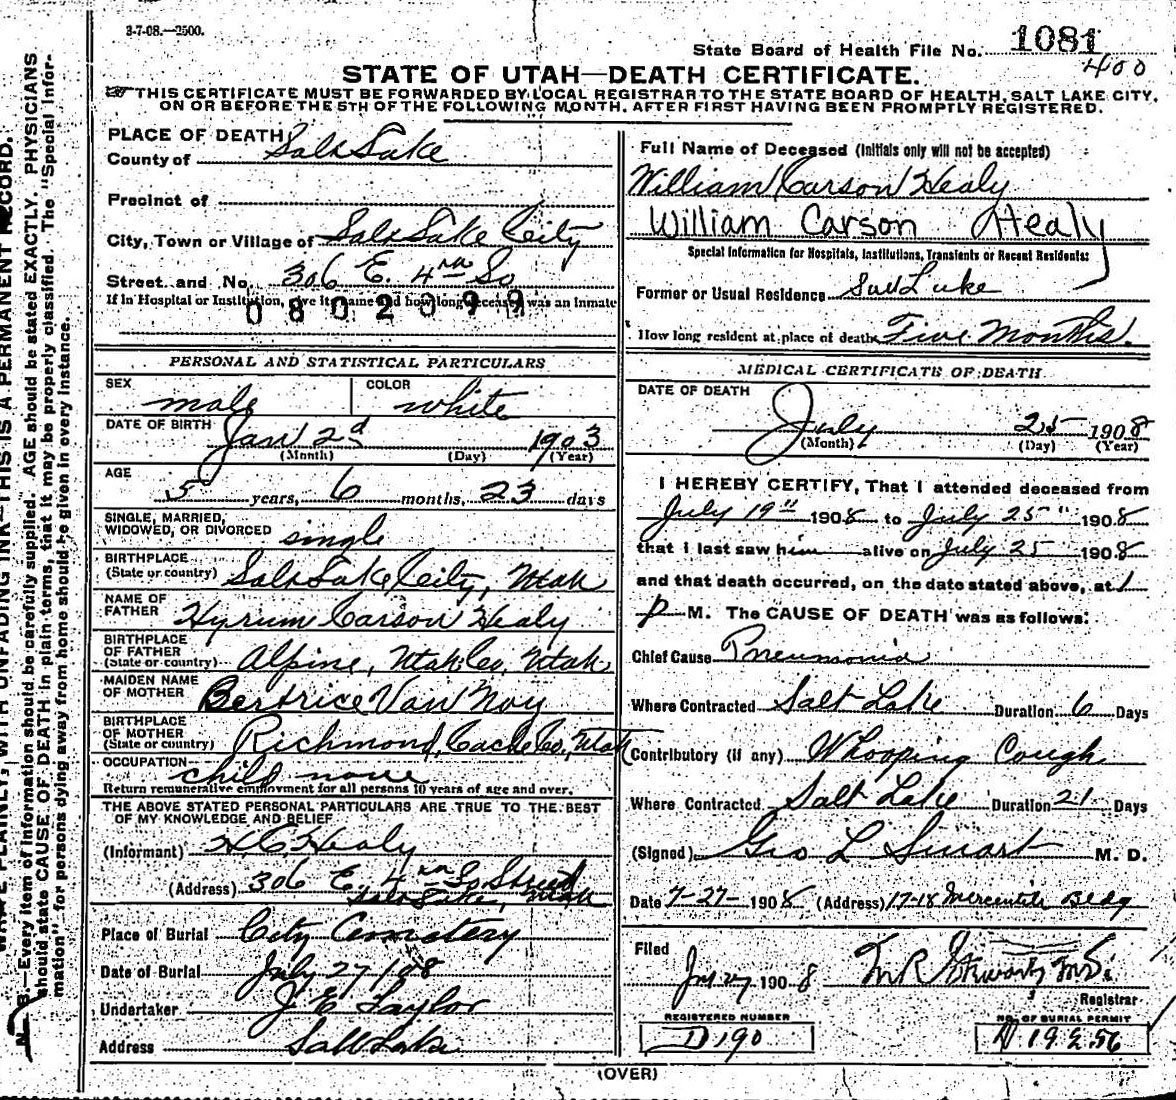 3-7-08.—2500.
State Board of Health File No. 1081
400
STATE OF UTAH—DEATH CERTIFICATE.
THIS CERTIFICATE MUST BE FORWARDED BY LOCAL REGISTRAR TO THE STATE BOARD OF HEALTH, SALT LAKE CITY,
ON OR BEFORE THE 5TH OF THE FOLLOWING MONTH, AFTER FIRST HAVING BEEN PROMPTLY REGISTERED.
PLACE OF DEATH
County of Salt Lake
Precinct of
City, Town or Village of Salt Lake City
Street and No. 306 E. 4th So
If in Hospital or Institution, give its name and how long deceased was an inmate
0802099
PERSONAL AND STATISTICAL PARTICULARS
SEX male COLOR white
DATE OF BIRTH Jan 2d 1903
(Month) (Day) (Year)
AGE 5 years, 6 months, 23 days
SINGLE, MARRIED,
WIDOWED, OR DIVORCED single
BIRTHPLACE
(State or country) Salt Lake City, Utah
NAME OF
FATHER Hyrum Carson Healy
BIRTHPLACE
OF FATHER
(State or country) Alpine, Utah Co, Utah
MAIDEN NAME
OF MOTHER Bertrice Van Noy
BIRTHPLACE
OF MOTHER
(State or country) Richmond, Cache Co, Utah
OCCUPATION child none
Return remunerative employment for all persons 10 years of age and over.
THE ABOVE STATED PERSONAL PARTICULARS ARE TRUE TO THE BEST
OF MY KNOWLEDGE AND BELIEF
(Informant) H C Healy
(Address) 306 E. 4th So Street
Salt Lake, Utah
Place of Burial City Cemetery
Date of Burial July 27/08
Undertaker J E Taylor
Address Salt Lake
Full Name of Deceased (Initials only will not be accepted)
William Carson Healy
William Carson Healy
Special Information for Hospitals, Institutions, Transients or Recent Residents:
Former or Usual Residence Salt Lake
How long resident at place of death Five Months.
MEDICAL CERTIFICATE OF DEATH
DATE OF DEATH
July 25 1908
(Month) (Day) (Year)
I HEREBY CERTIFY, That I attended deceased from
July 19" 1908 to July 25" 1908
that I last saw him alive on July 25 1908
and that death occurred, on the date stated above, at 1
P M. The CAUSE OF DEATH was as follows:
Chief Cause Pneumonia
Where Contracted Salt Lake Duration 6 Days
Contributory (if any) Whooping Cough
Where Contracted Salt Lake Duration 21 Days
(Signed) Geo L Smart M. D.
Date 7-27-1908 (Address) 17-18 Mercantile Bldg
Filed
1908
Registrar
REGISTERED NUMBER
D190
NO. OF BURIAL PERMIT
(OVER)
N. B.—Every item of information should be carefully supplied. AGE should be stated EXACTLY. PHYSICIANS
should state CAUSE OF DEATH in plain terms, that it may be properly classified. The "Special Infor-
mation" for persons dying away from home should be given in every instance.
WRITE PLAINLY, WITH UNFADING INK—THIS IS A PERMANENT RECORD.